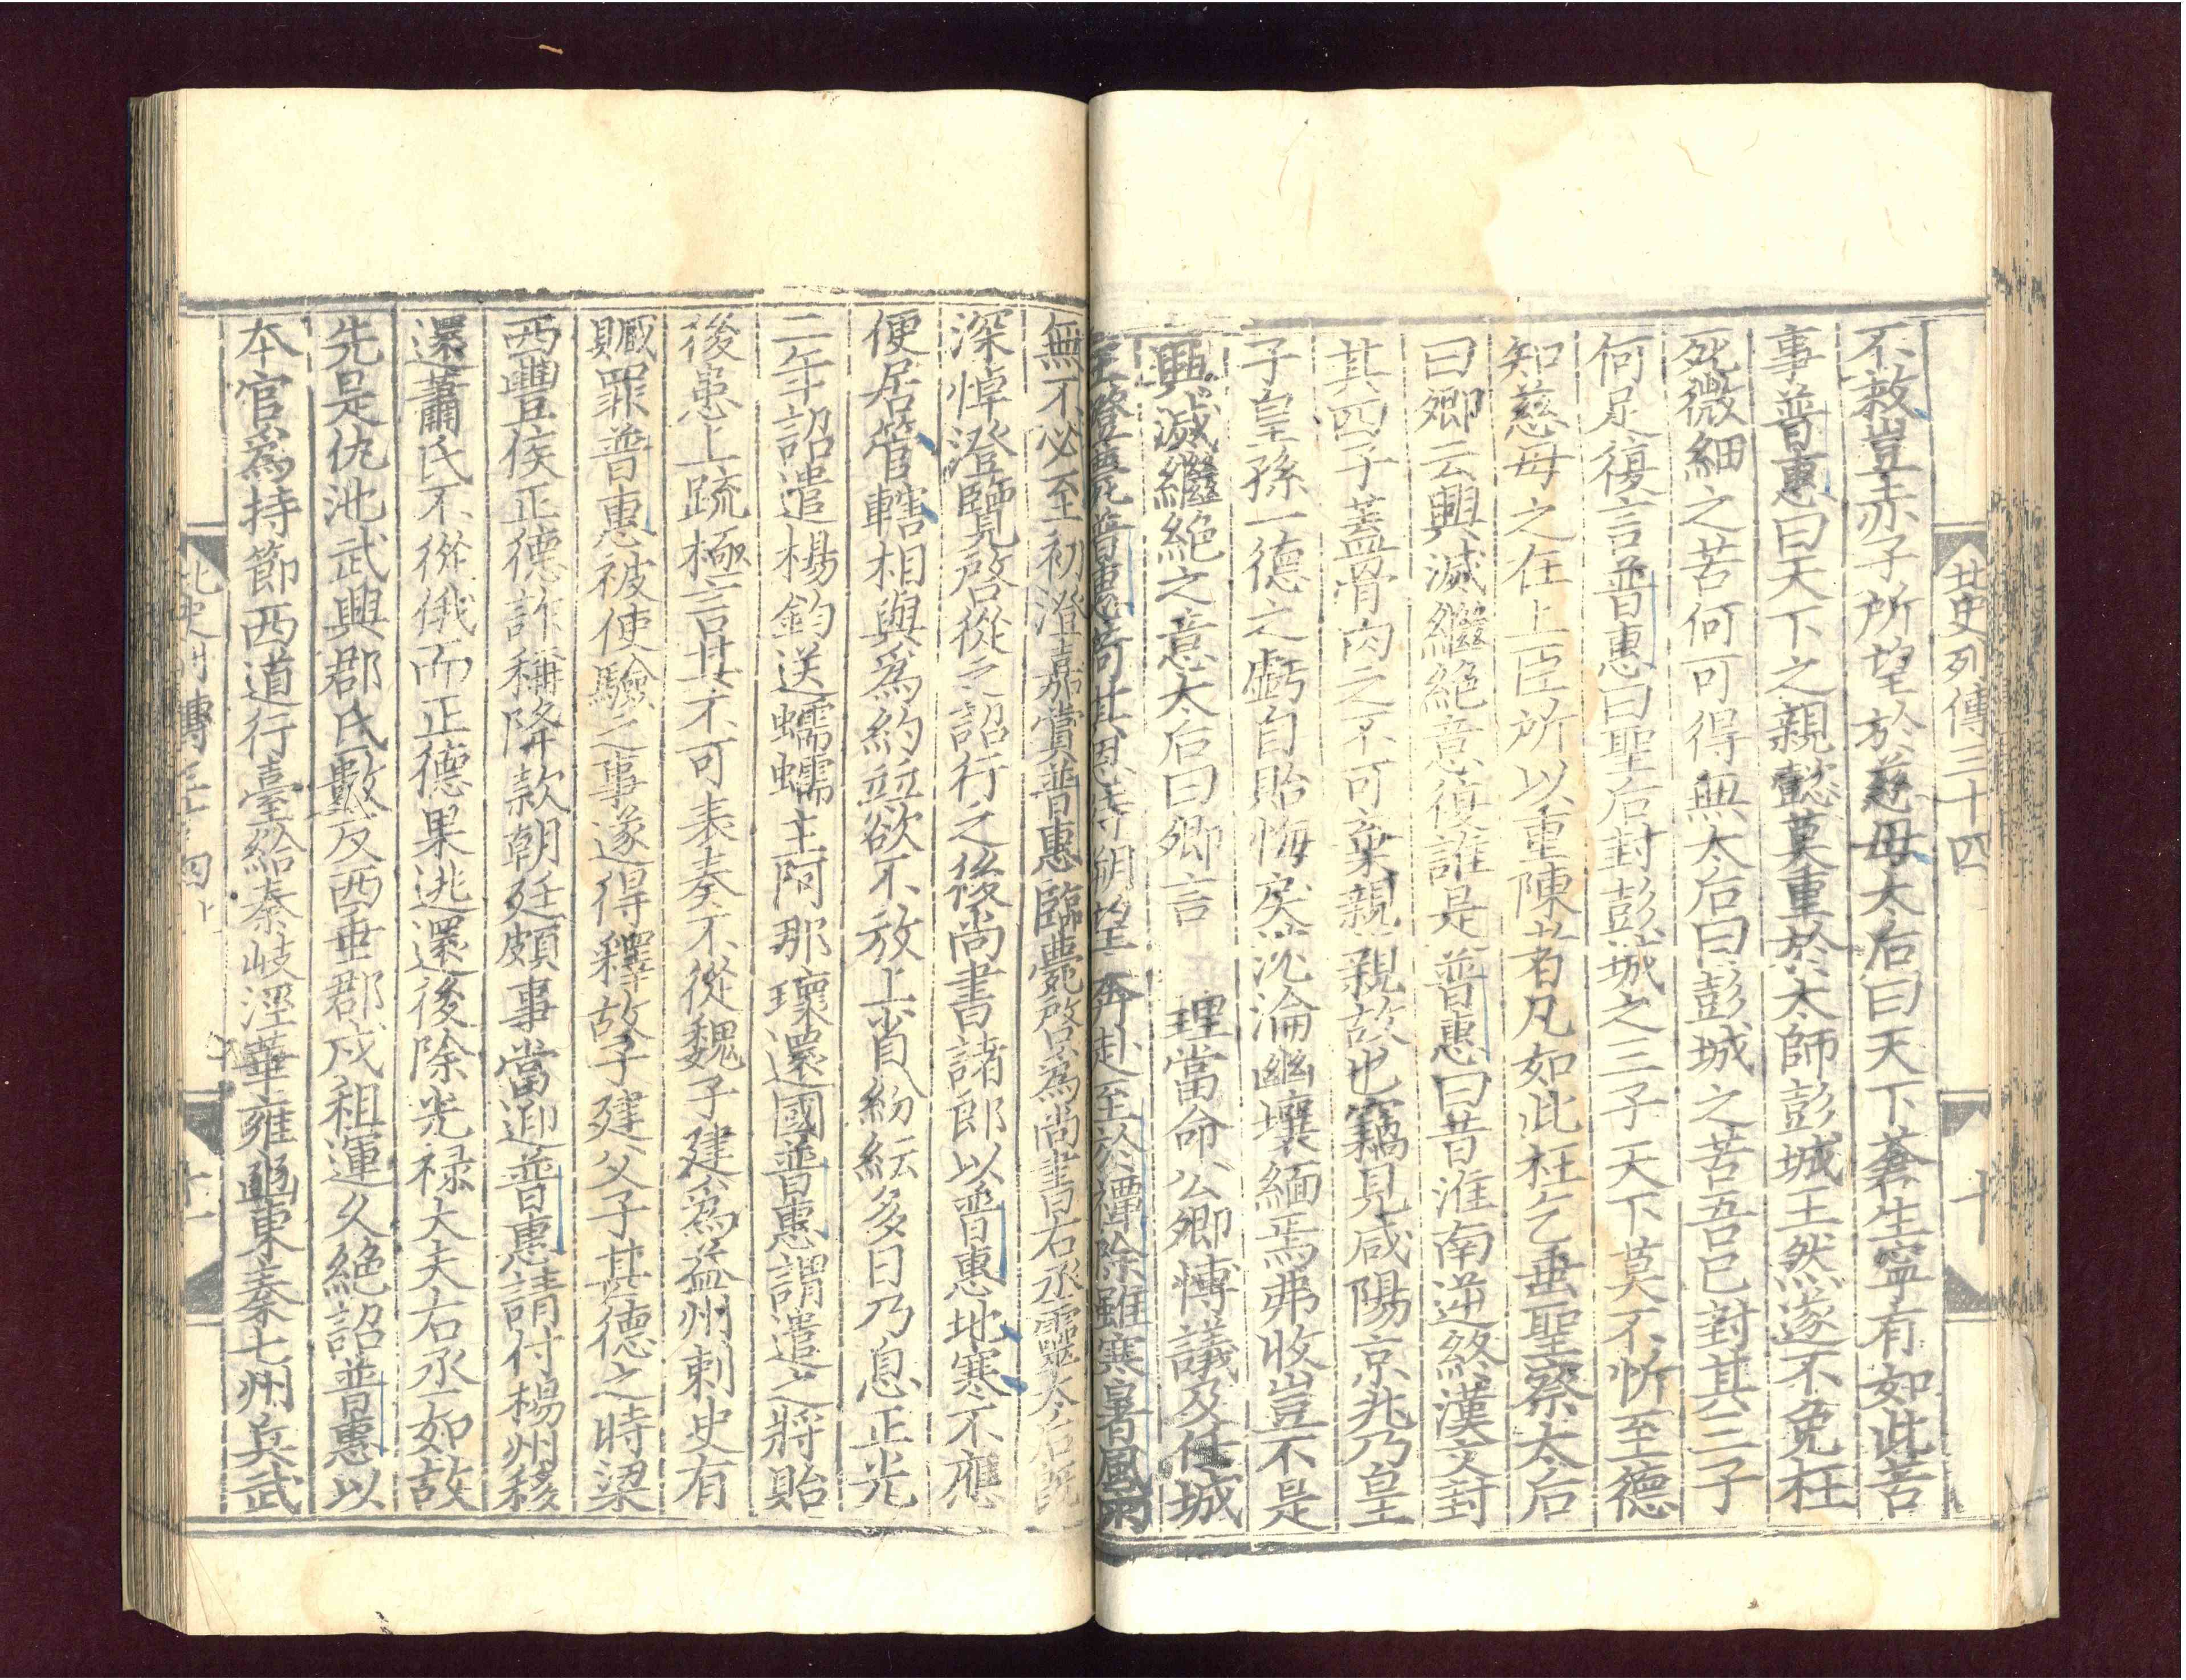 北史列傳三十四
十
不救豈赤子所望於慈母太后曰天下蒼生寧有如此苦
事普惠曰天下之親懿莫重於太師彭城王然遂不免枉
死微細之苦何可得無太后曰彭城之苦吾已封其三子
何足復言普惠曰聖后封彭城之三子天下莫不忻至德
知慈母之在上臣所以重陳者凡如此枉乞垂聖察太后
曰卿云興滅繼絕意復誰是普惠曰昔淮南逆終漢文封
其四子蓋骨肉之不可棄親親故也竊見咸陽京兆乃皇
子皇孫一德之虧自貽悔戾沈淪幽壤緬焉弗收豈不是
興滅繼絕之意太后曰卿言 理當命公卿博議及任城
王澄薨普惠以其恩待朔望奔赴至於禫除雖寒暑風雨
無不必至初澄嘉賞普惠臨薨啓為尚書右丞靈太后既
深悼澄覽啓從之詔行之後尚書諸郎以普惠地寒不應
便居管轄相與為約並欲不放上省紛紜多日乃息正光
二年詔遣楊鈞送蠕蠕主阿那瓌還國普惠謂遣之將貽
後患上疏極言其不可表奏不從魏子建為益州刺史有
贓罪普惠被使驗之事遂得釋故子建父子甚德之時梁
西豐侯正德詐稱降款朝廷頗事當迎普惠請付楊州移
還蕭氏不從俄而正德果逃還後除光祿大夫右丞如故
先是仇池武興郡氐數反西垂郡戍租運久絕詔普惠以
本官為持節西道行臺給秦岐涇華雍豳東秦七州兵武
北史列傳三十四
十一